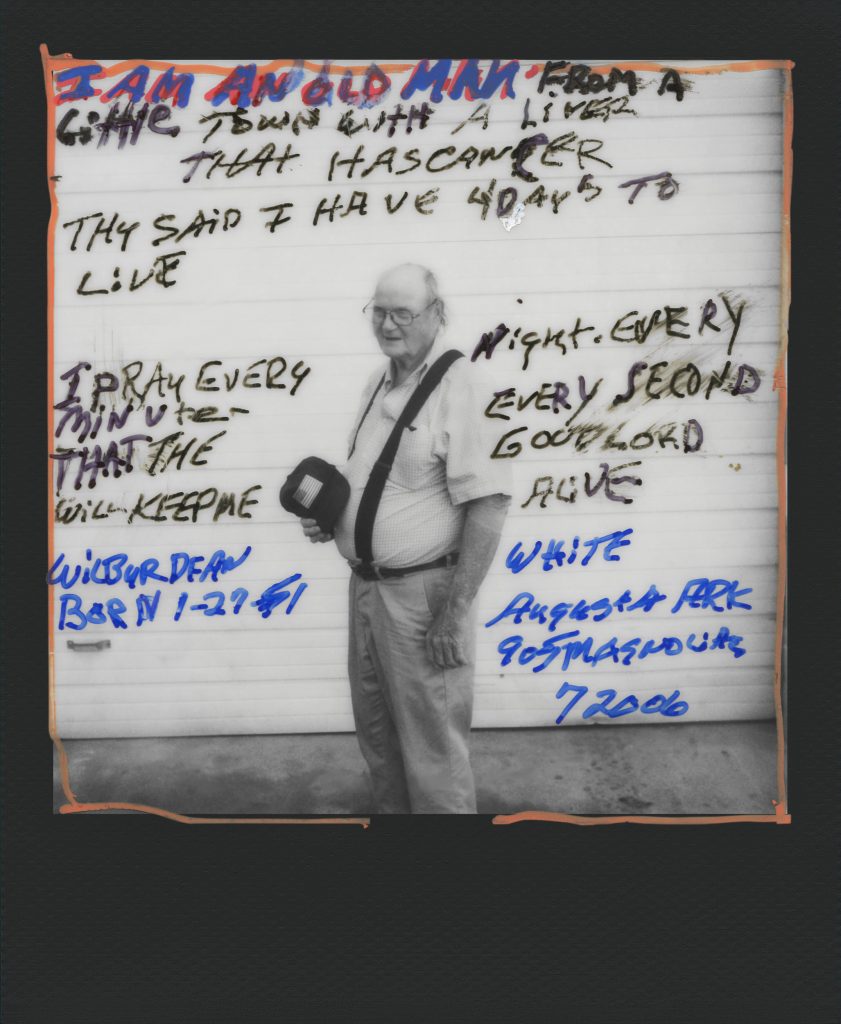 I AM AN OLD MAN FROM A
Little TOWN WITH A LIVER
THAT HAS CANCER
THY SAID I HAVE 40 DAYS TO
LIVE
I PRAY EVERY
MINUTE
THAT THE
WILL KEEP ME
Night. EVERY
EVERY SECOND
GOOD LORD
ALIVE
WILBUR DEAN
BORN 1-27-51
WHITE
Augusta ARK
905 MAGNOLIA
72006